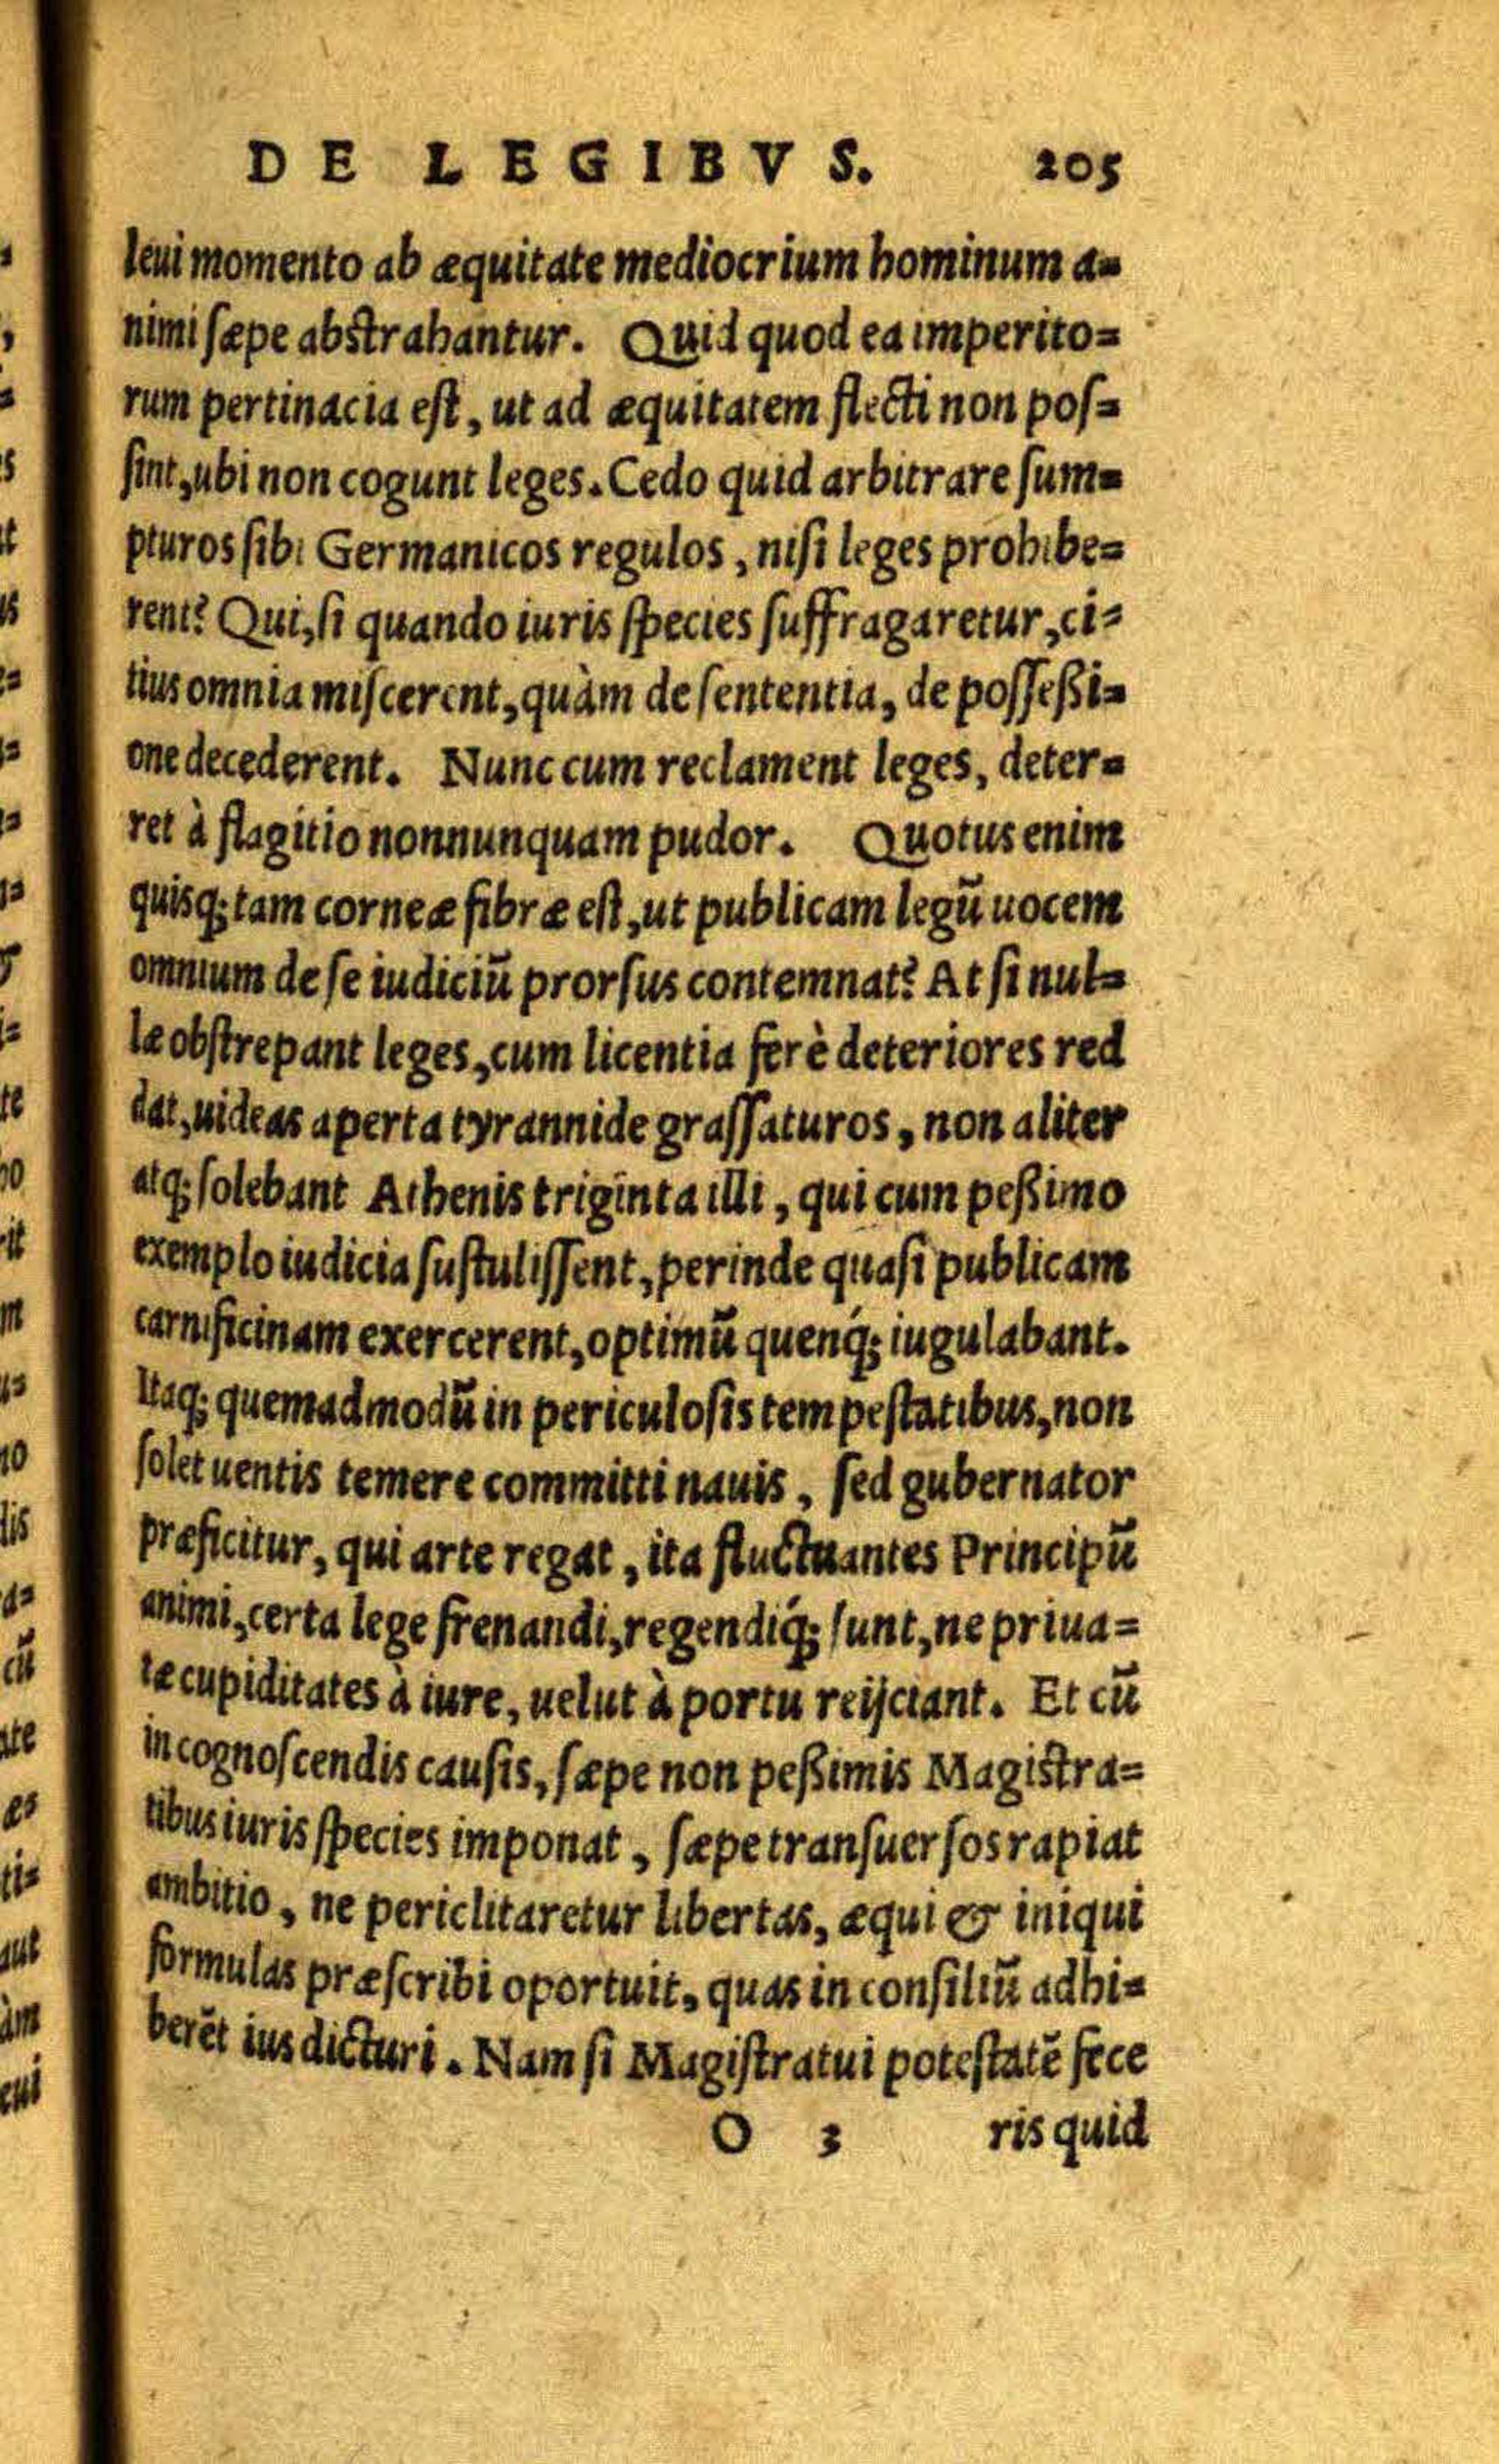 DE LEGIBVS. 205
leui momento ab æquitate mediocrium hominum a=
nimi sæpe abstrahantur. Quid quod ea imperito=
rum pertinacia est, ut ad æquitatem flecti non pos=
sint, ubi non cogunt leges. Cedo quid arbitrare sum=
pturos sibi Germanicos regulos, nisi leges prohibe=
rent? Qui, si quando iuris species suffragaretur, ci=
tius omnia miscerent, quàm de sententia, de posseßi=
one decederent. Nunc cum reclament leges, deter=
ret à flagitio nonnunquam pudor. Quotus enim
quisq; tam corneæ fibræ est, ut publicam legū uocem
omnium de se iudiciū prorsus contemnat? At si nul=
læ obstrepant leges, cum licentia ferè deteriores red
dat, uideas aperta tyrannide grassaturos, non aliter
atq; solebant Athenis triginta illi, qui cum peßimo
exemplo iudicia sustulissent, perinde quasi publicam
carnificinam exercerent, optimū quenq́; iugulabant.
Itaq; quemadmodū in periculosis tempestatibus, non
solet uentis temere committi nauis, sed gubernator
præficitur, qui arte regat, ita fluctuantes Principū
animi, certa lege frenandi, regendiq́; sunt, ne priua=
tæ cupiditates à iure, uelut à portu reijciant. Et cū
in cognoscendis causis, sæpe non peßimis Magistra=
tibus iuris species imponat, sæpe transuersos rapiat
ambitio, ne periclitaretur libertas, æqui & iniqui
formulas præscribi oportuit, quas in consiliū adhi=
berēt ius dicturi. Nam si Magistratui potestatē fece
O 3 ris quid